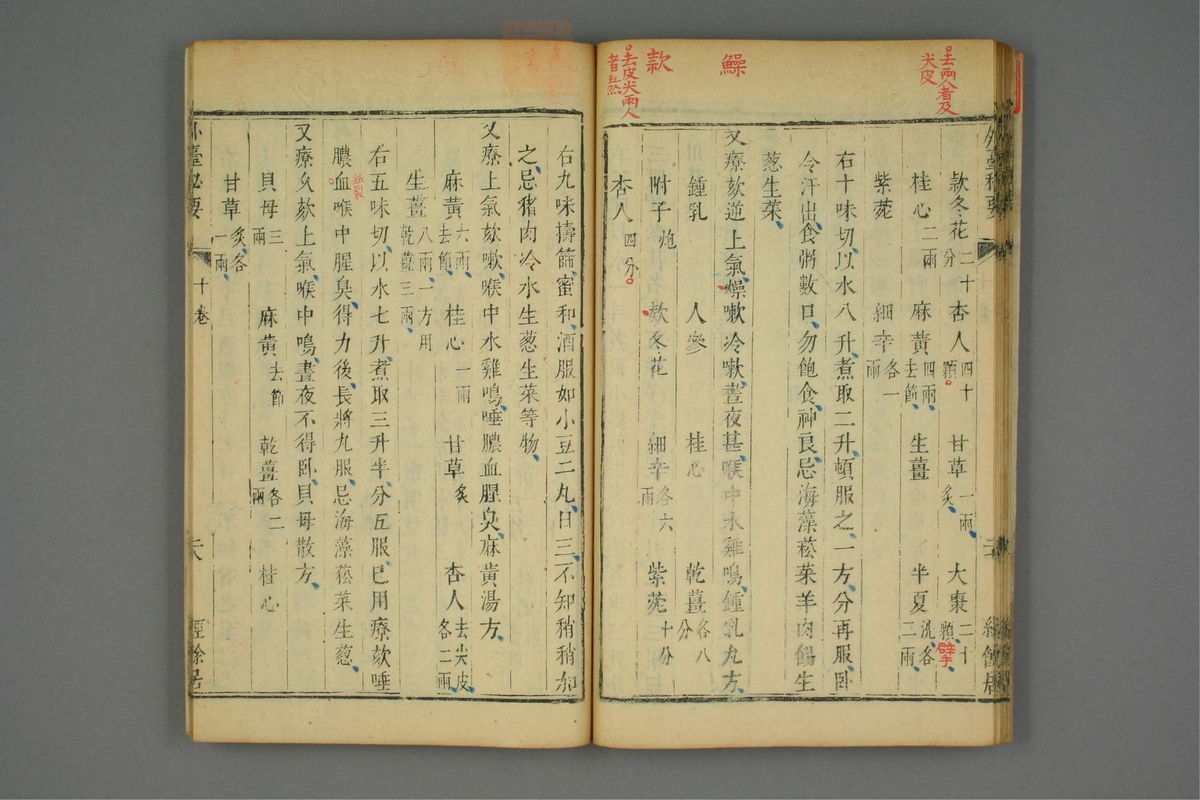 去兩人者及
尖皮
鱢
款
去皮尖兩人
者熬
款冬花二十分 杏人四十顆 甘草一兩炙 大棗二十顆擘
桂心二兩 麻黃四兩去節 生薑 半夏洗各三兩
紫菀 細辛各一兩
右十味切以水八升煮取二升頓服之一方分再服臥
令汗出食粥數口勿飽食神良忌海藻菘菜羊肉餳生
葱生菜
又療欬逆上氣燥嗽冷嗽晝夜甚喉中水雞鳴鍾乳丸方
鍾乳 人參 桂心 乾薑各八分
附子炮 款冬花 細辛各六兩 紫菀十分
杏人四分
右九味擣篩蜜和酒服如小豆二丸日三不知稍稍加
之忌猪肉冷水生葱生菜等物
又療上氣欬嗽喉中水雞鳴唾膿血腥臭麻黃湯方
麻黃六兩去節 桂心一兩 甘草炙 杏人去尖皮各二兩
生薑八兩一方用乾薑三兩
右五味切以水七升煮取三升半分五服已用療欬唾
膿血喉中腥臭得力後長將丸服忌海藻菘菜生葱
又療久欬上氣喉中鳴晝夜不得臥貝母散方
貝母三兩 麻黃去節 乾薑各二兩 桂心
甘草炙各一兩
外臺秘要 十卷 二六 經餘居